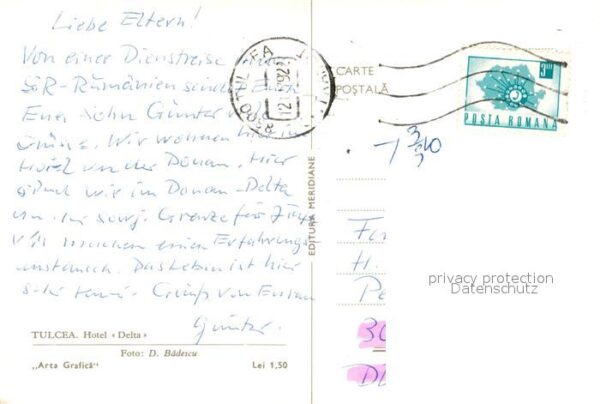 Liebe Eltern!
Von einer Dienstreise
SSR-Rumänien sendet Euch
Euer Sohn Günter
Grüße. Wir wohnen hier im
Hotel an der Donau. Hier
sind wir im Donau-Delta
an der sowj. Grenze für
machen einen Erfahrungs
austausch. Das Leben ist hier
sehr Grüße von Eurem
Günter.
TULCEA. Hotel «Delta»
Foto: D. Bădescu
„Arta Grafică“
Lei 1,50
EDITURA MERIDIANE
CARTE
POŞTALĂ
8800 TULCEA
POSTA ROMANA
privacy protection
Datenschutz
Fa
H.
Pe
30